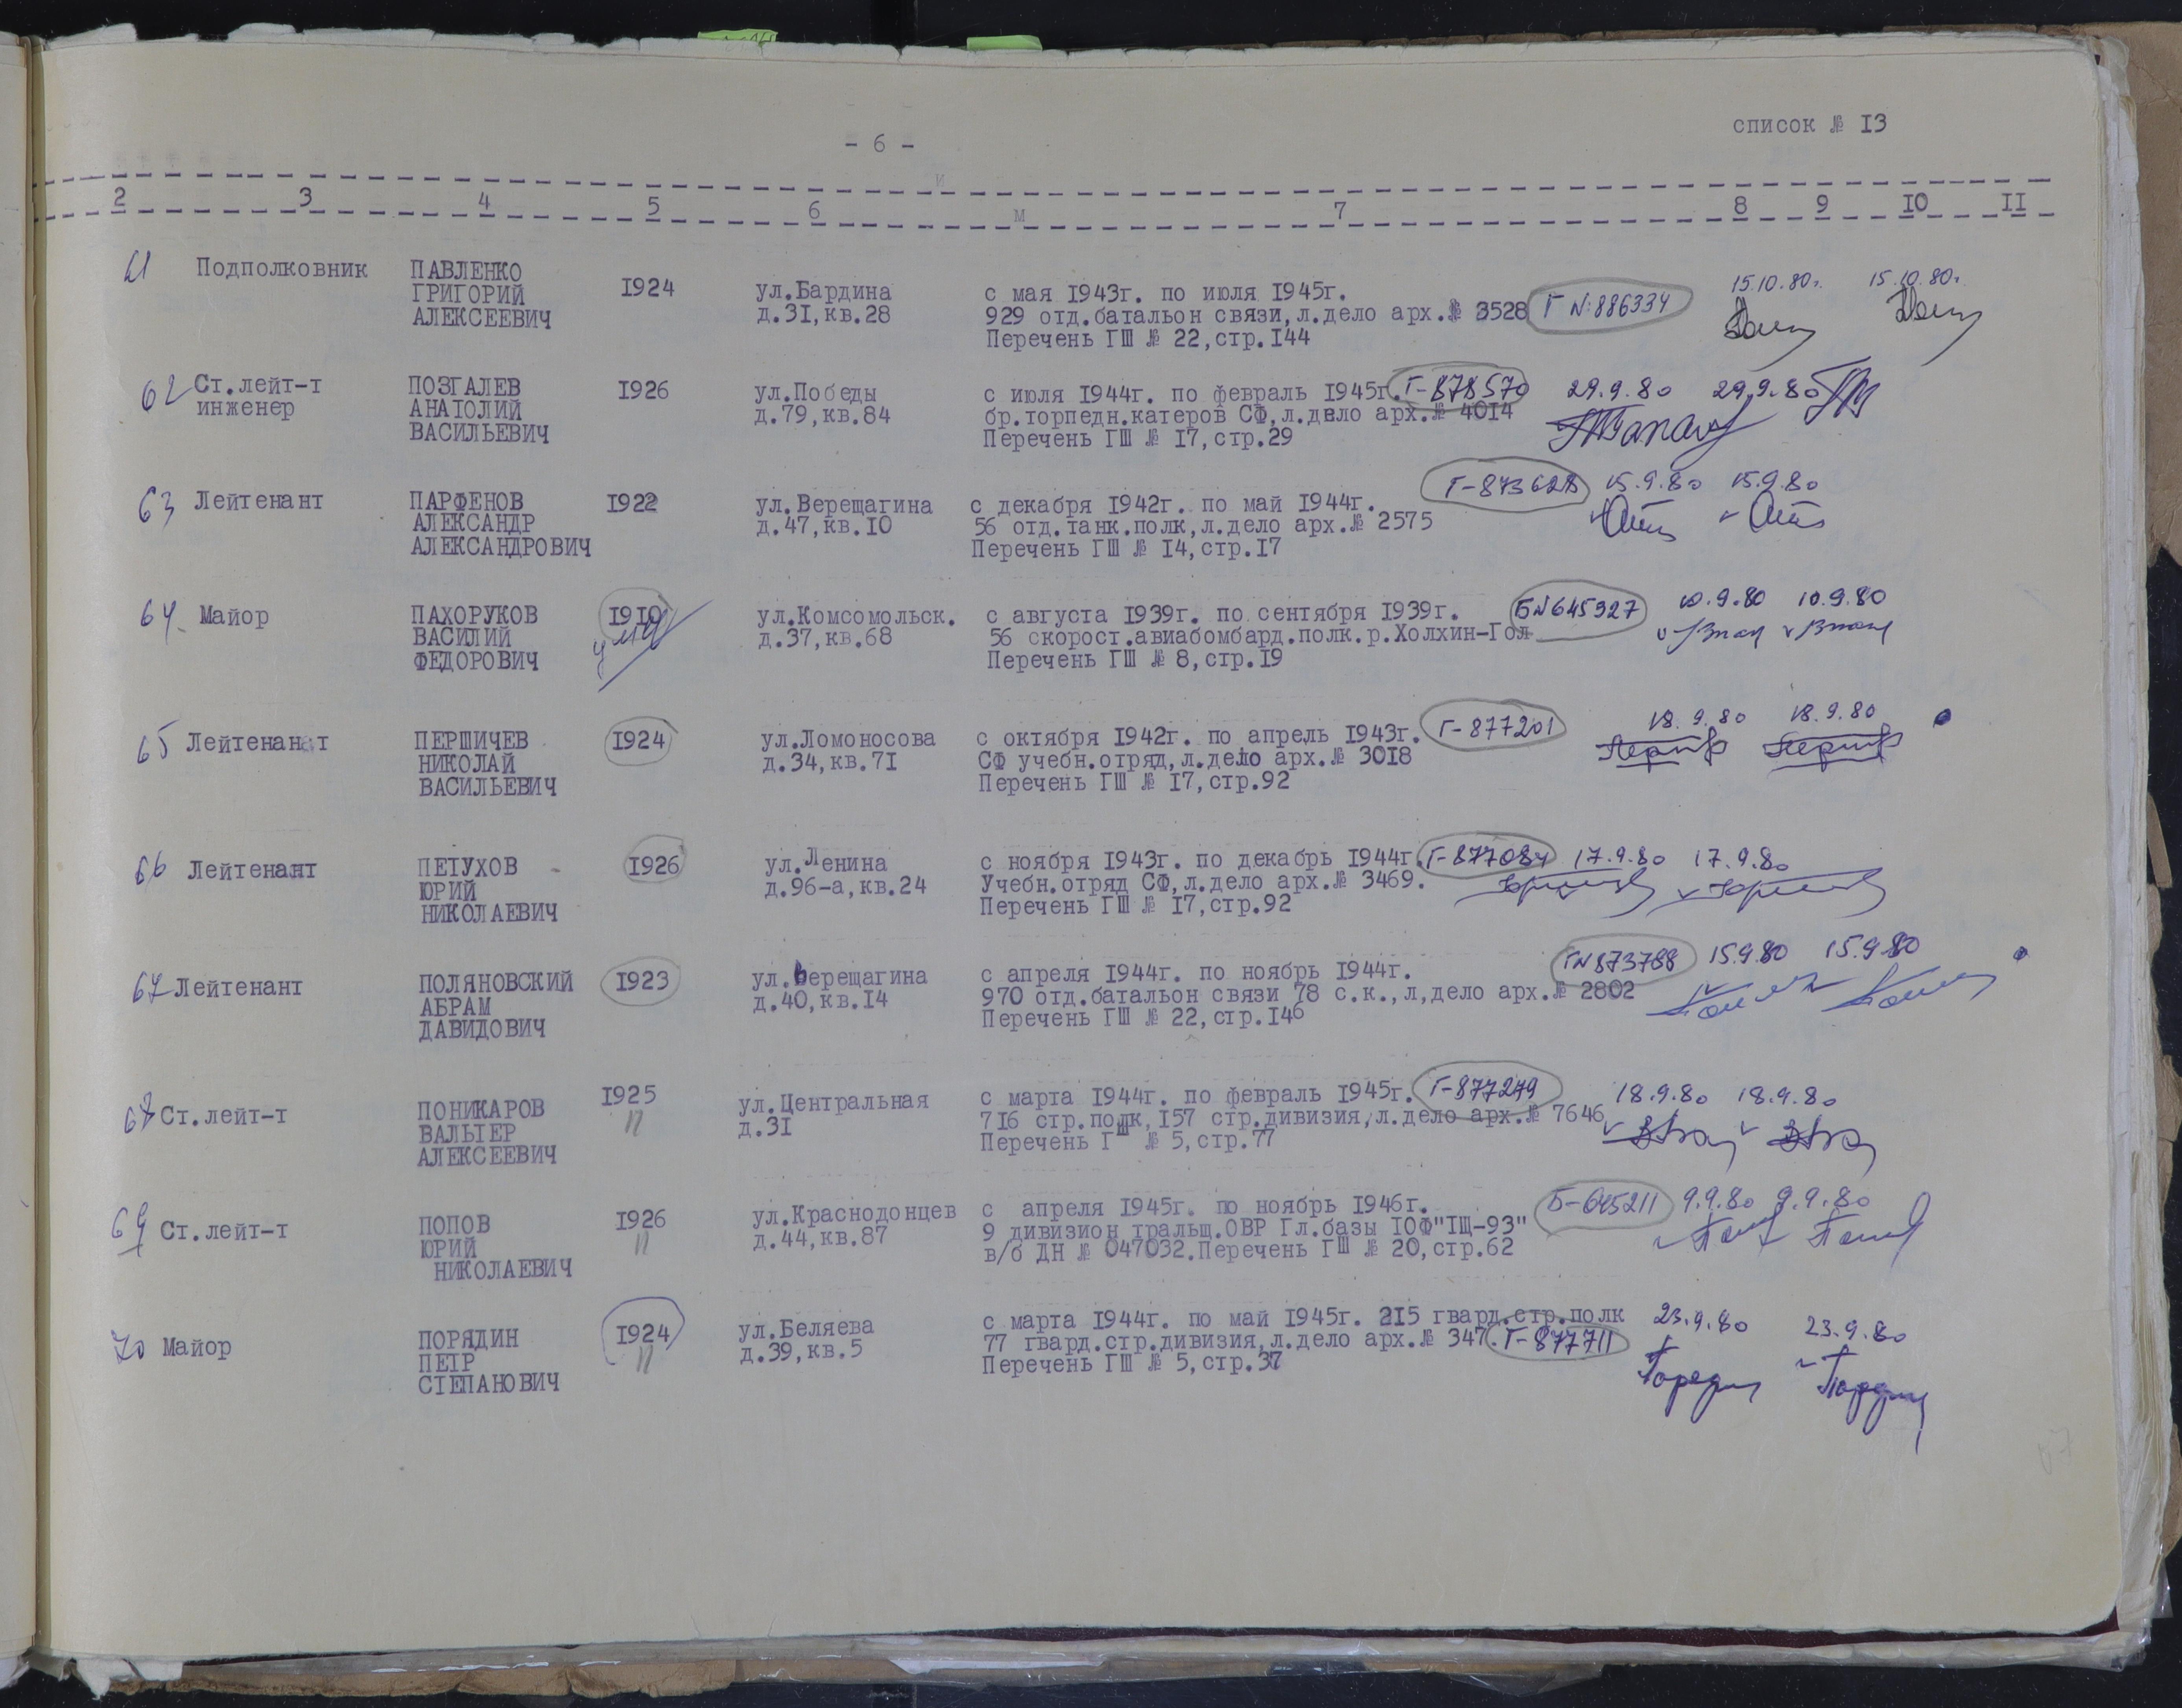 список № I3
- 6 -
2 3 4 5 6 7 8 9 IO II
61 Подполковник ПАВЛЕНКО ГРИГОРИЙ АЛЕКСЕЕВИЧ I924 ул.Бардина д.3I,кв.28
с мая I943г. по июля I945г.
929 отд.батальон связи,л.дело арх.№ 3528 Г №:886334 15.10.80г. 15.10.80г.
Перечень ГШ № 22,стр.I44
62 Ст.лейт-т инженер ПОЗГАЛЕВ АНАТОЛИЙ ВАСИЛЬЕВИЧ I926 ул.Победы д.79,кв.84
с июля I944г. по февраль I945г. Г-878570 29.9.80 29.9.80
бр.торпедн.катеров СФ,л.дело арх.№ 40I4
Перечень ГШ № I7,стр.29
63 Лейтенант ПАРФЕНОВ АЛЕКСАНДР АЛЕКСАНДРОВИЧ I922 ул.Верещагина д.47,кв.IO
с декабря I942г. по май I944г. Г-873628 15.9.80 15.9.80
56 отд.танк.полк,л.дело арх.№ 2575
Перечень ГШ № I4,стр.I7
64 Майор ПАХОРУКОВ ВАСИЛИЙ ФЕДОРОВИЧ I9I0 ул.Комсомольск. д.37,кв.68
с августа I939г. по сентября I939г. Б№645327 10.9.80 10.9.80
56 скорост.авиабомбард.полк.р.Холхин-Гол
Перечень ГШ № 8,стр.I9
65 Лейтенант ПЕРШИЧЕВ НИКОЛАЙ ВАСИЛЬЕВИЧ I924 ул.Ломоносова д.34,кв.7I
с октября I942г. по апрель I943г. Г-877201 18.9.80 18.9.80
СФ учебн.отряд,л.дело арх.№ 30I8
Перечень ГШ № I7,стр.92
66 Лейтенант ПЕТУХОВ ЮРИЙ НИКОЛАЕВИЧ I926 ул.Ленина д.96-а,кв.24
с ноября I943г. по декабрь I944г. Г-877084 17.9.80 17.9.80
Учебн.отряд СФ,л.дело арх.№ 3469.
Перечень ГШ № I7,стр.92
67 Лейтенант ПОЛЯНОВСКИЙ АБРАМ ДАВИДОВИЧ I923 ул.Верещагина д.40,кв.I4
с апреля I944г. по ноябрь I944г. Г№873788 15.9.80 15.9.80
970 отд.батальон связи 78 с.к.,л,дело арх.№ 2802
Перечень ГШ № 22,стр.I46
68 Ст.лейт-т ПОНИКАРОВ ВАЛЬТЕР АЛЕКСЕЕВИЧ I925 ул.Центральная д.3I
с марта I944г. по февраль I945г. Г-877279 18.9.80 18.9.80
7I6 стр.полк,I57 стр.дивизия,л.дело арх.№ 7646
Перечень ГШ № 5,стр.77
69 Ст.лейт-т ПОПОВ ЮРИЙ НИКОЛАЕВИЧ I926 ул.Краснодонцев д.44,кв.87
с апреля I945г. по ноябрь I946г. Б-645211 9.9.80 9.9.80
9 дивизион тральщ.ОВР Гл.базы ТОФ"ТЩ-93"
в/б ДН № 047032.Перечень ГШ № 20,стр.62
70 Майор ПОРЯДИН ПЕТР СТЕПАНОВИЧ I924 ул.Беляева д.39,кв.5
с марта I944г. по май I945г. 2I5 гвард.стр.полк 23.9.80 23.9.80
77 гвард.стр.дивизия,л.дело арх.№ 347. Г-877711
Перечень ГШ № 5,стр.37